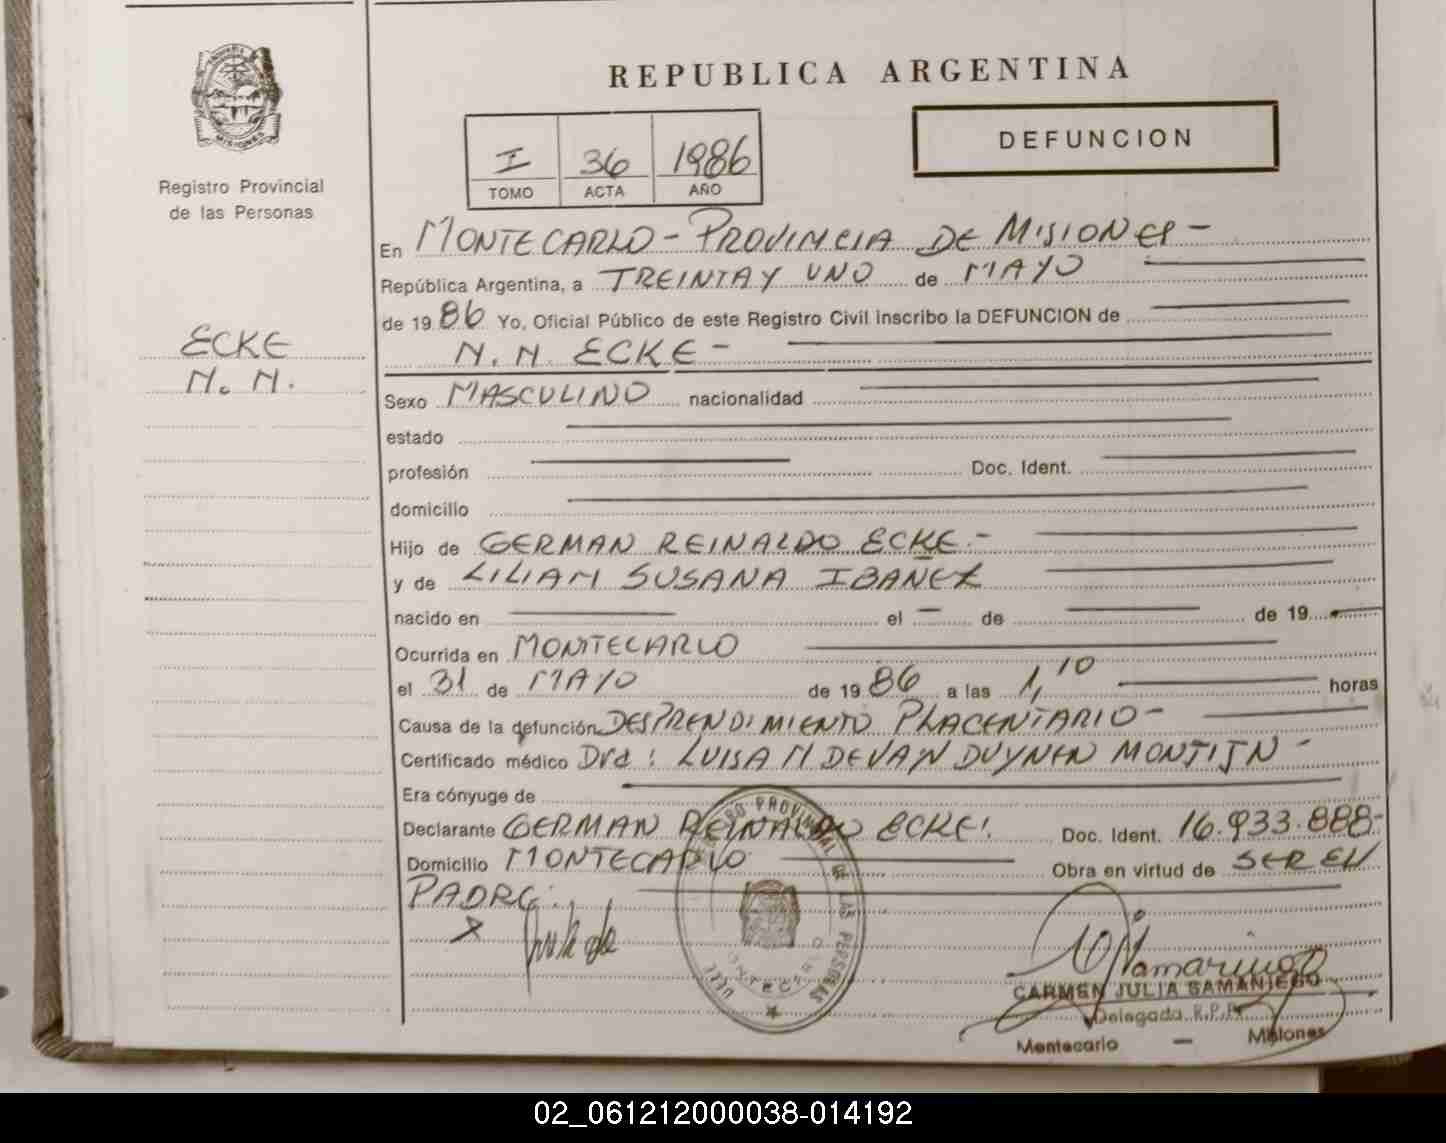 REPUBLICA ARGENTINA
PROVINCIA
MISIONES
Registro Provincial
de las Personas
I 36 1986
TOMO ACTA AÑO
DEFUNCION
ECKE
N. N.
En MONTECARLO - PROVINCIA DE MISIONES -
República Argentina, a TREINTA Y UNO de MAYO
de 1986 Yo, Oficial Público de este Registro Civil inscribo la DEFUNCION de
N. N. ECKE -
Sexo MASCULINO nacionalidad
estado
profesión Doc. Ident.
domicilio
Hijo de GERMAN REINALDO ECKE.-
y de LILIAN SUSANA IBANEZ
nacido en el de de 19
Ocurrida en MONTECARLO
el 31 de MAYO de 1986 a las 1,10 horas
Causa de la defunción DESPRENDIMIENTO PLACENTARIO -
Certificado médico Dra: LUISA M DE VAN DUYNEN MONTIJN -
Era cónyuge de
Declarante GERMAN REINALDO ECKE. Doc. Ident. 16.933.888-
Domicilio MONTECARLO Obra en virtud de SER EL
PADRE.
X
REGISTRO PROVINCIAL DE LAS PERSONAS
MONTECARLO
CARMEN JULIA SAMANIEGO
Delegada R.P.P.
Montecarlo - Misiones
02_061212000038-014192